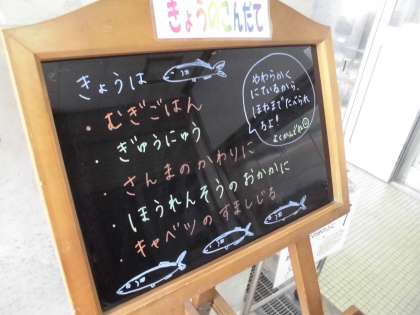 きょうのこんだて
きょうは
・むぎごはん
・ぎゅうにゅう
・さんまのかわりに
・ほうれんそうのおかかに
・キャベツのすましじる
やわらかく
にているから、
ほねまでたべられ
るよ!
よくかんでね